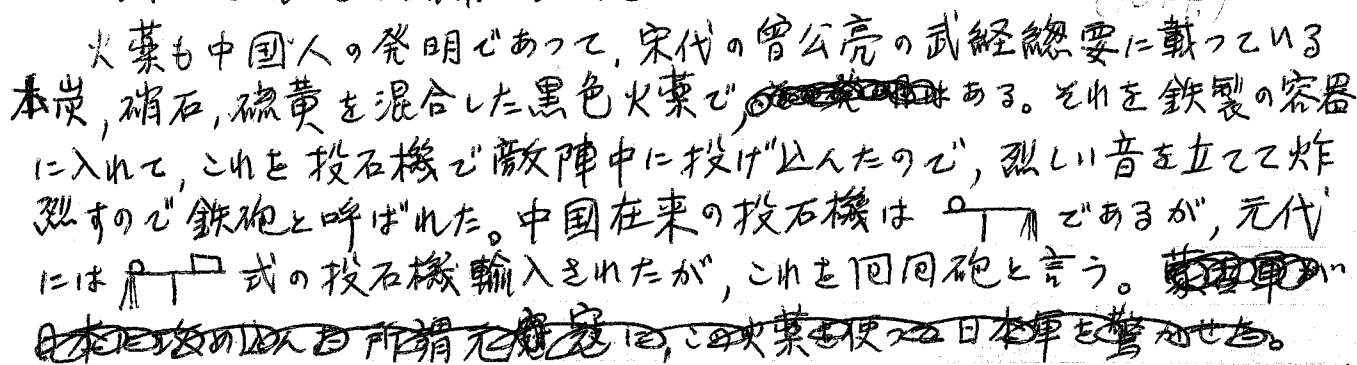 火薬も中国人の発明であって、宋代の曾公亮の武経總要に載っている
木炭,硝石,硫黄を混合した黒色火薬で,ある。それを鉄製の容器
に入れて,これを投石機で敵陣中に投げ込んだので,烈しい音を立てて炸
烈すので鉄砲と呼ばれた。中国在来の投石機は であるが,元代
には 式の投石機輸入されたが,これを回回砲と言う。が
日本に攻め込んだ所謂元寇に,この火薬を使って日本軍を驚かせた。